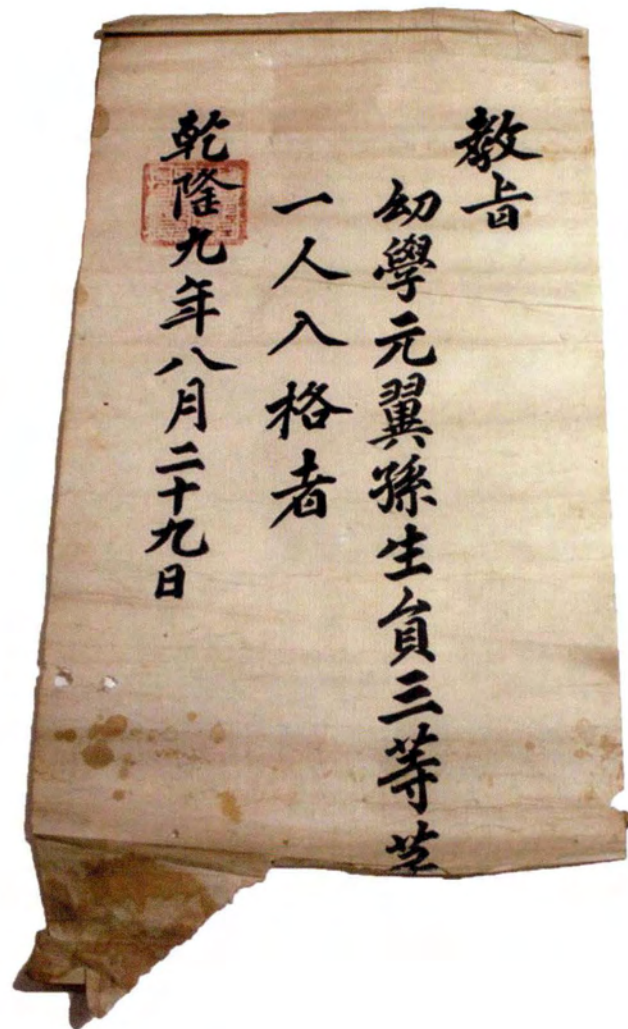 教旨
幼學元翼孫生貟三等
一人入格者
乾隆九年八月二十九日